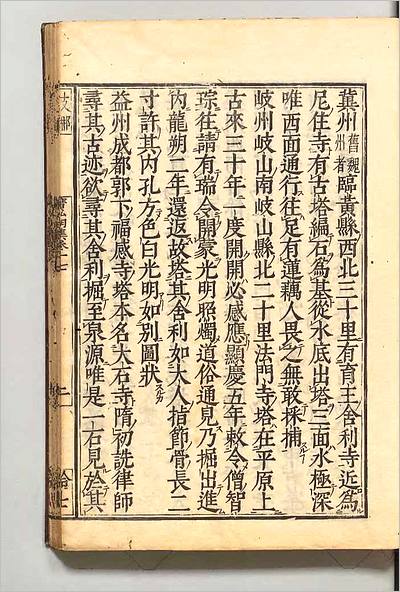 冀州舊魏州者臨黃縣西北三十里有育王舍利寺近為
尼住寺有古塔編石為基從水底出塔三面水極深
唯西面通行往足有蓮藕人畏之無敢採捕
岐州岐山南岐山縣北二十里法門寺塔在平原上
古來三十年一度開開必感應顯慶五年敕令僧智
琮往請有瑞令開蒙光明照燭道俗通見乃掘出進
內龍朔二年還返故塔其舍利如大人指節骨長二
寸許其內孔方色白光明如別圖狀
益州成都郭下福感寺塔本名大石寺隋初詵律師
尋其古迹欲尋其舍利掘至泉源唯是一石見於其